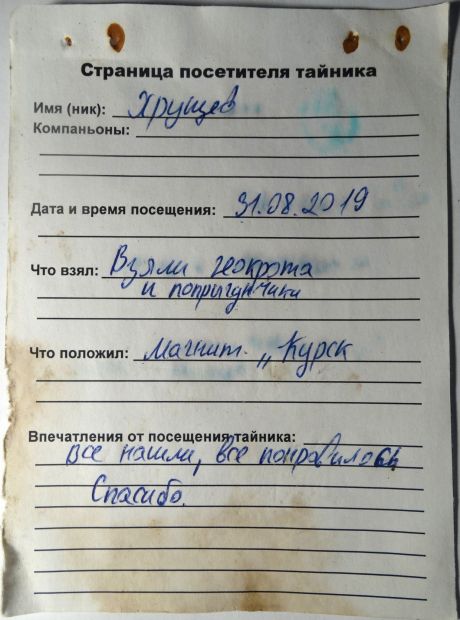 Страница посетителя тайника
Имя (ник): Хрущев
Компаньоны:
Дата и время посещения: 31.08.2019
Что взял: Взяли геокрота
и попрыгунчики
Что положил: Магнит „Курск
Впечатления от посещения тайника:
Все нашли, все понравилось
Спасибо.